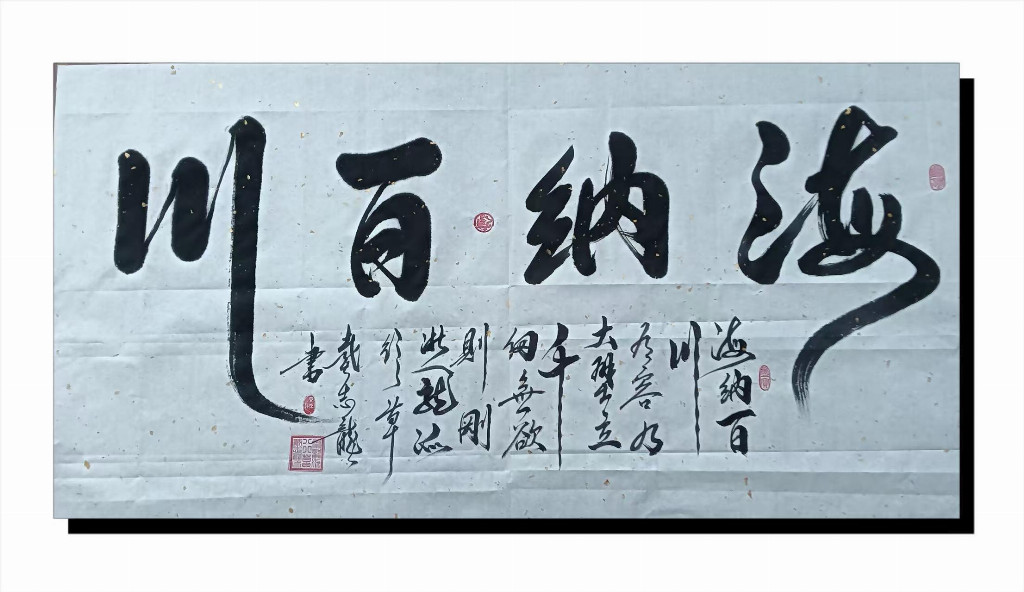 海納百川
海納百
川
有容乃
大壁立
千
仞無欲
則剛
龍
草
戴志龍
書